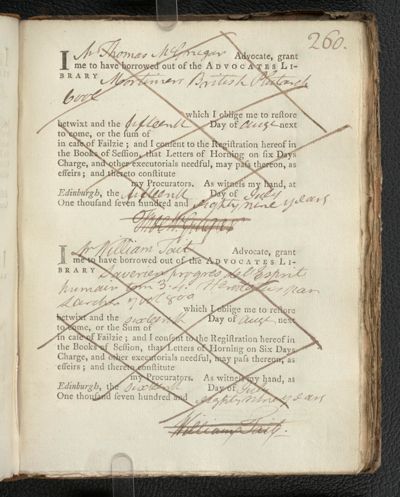 260.
I Mr Thomas McGrugar Advocate, grant
me to have borrowed out of the ADVOCATES LI-
BRARY Mortimers British Plutarch
6 vol
which I oblige me to restore
betwixt and the fifteenth Day of augt next
to come, or the sum of
in case of Failzie; and I consent to the Registration hereof in
the Books of Session, that Letters of Horning on six Days
Charge, and other executorials needful, may pass thereon, as
effeirs; and thereto constitute
my Procurators. As witness my hand, at
Edinburgh, the fifteenth Day of July
One thousand seven hundred and eighty nine years
I Mr William Tait Advocate, grant
me to have borrowed out of the ADVOCATES LI-
BRARY Saverien progres de l'Esprit
humain tom 3. 4. Herodotus par
Larcher
which I oblige me to restore
betwixt and the sixteenth Day of augt next
to come, or the Sum of
in case of Failzie; and I consent to the Registration hereof in
the Books of Session, that Letters of Horning on Six Days
Charge, and other executorials needful, may pass thereon; as
effeirs; and thereto constitute
my Procurators. As witness my hand, at
Edinburgh, the sixteenth Day of July
One thousand seven hundred and eighty nine years
William Tait.